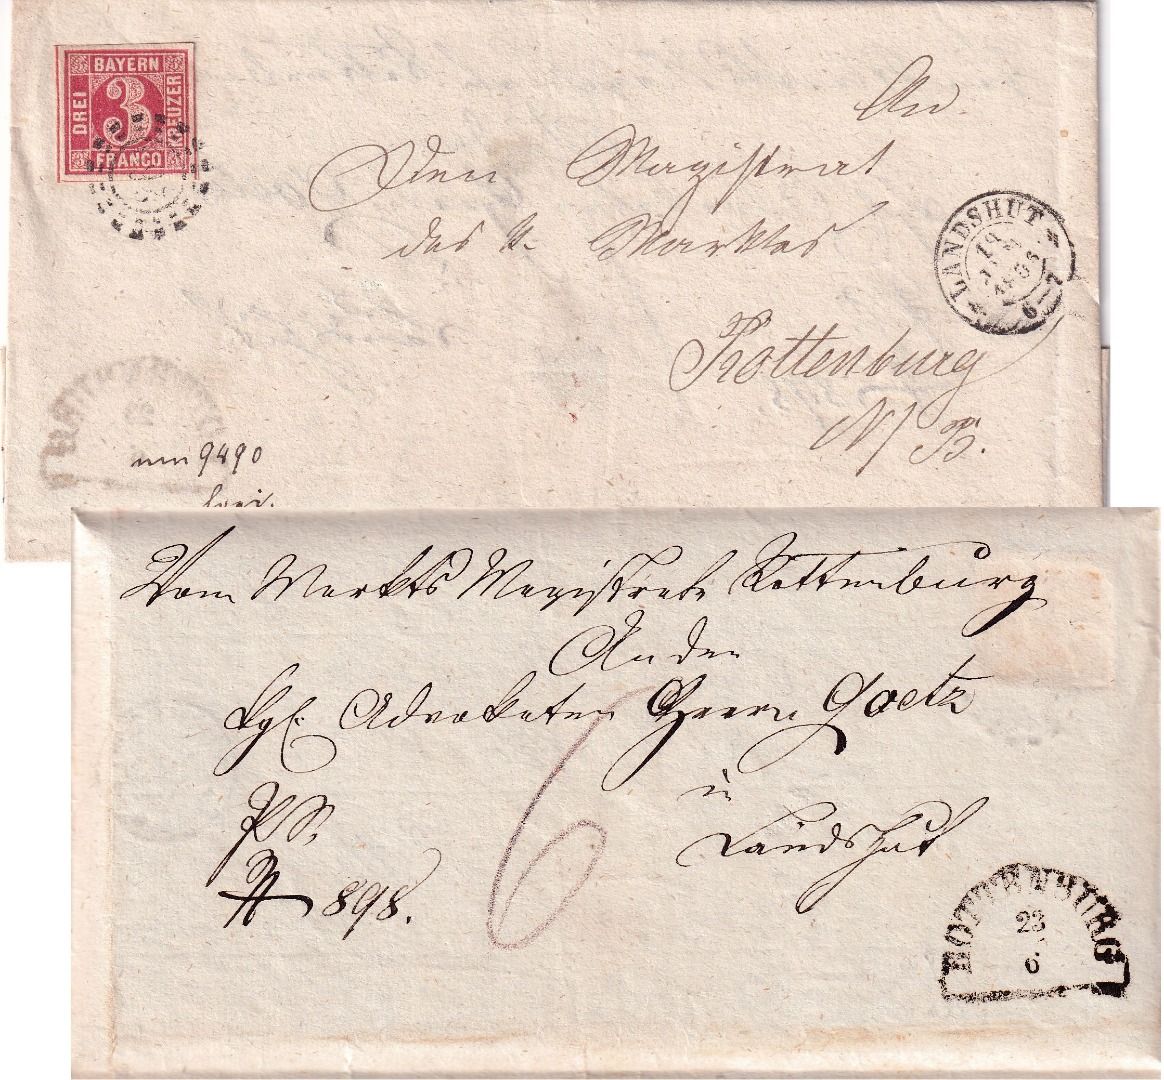 BAYERN
DREI
3
KREUZER
FRANCO
An
Den Magistrat
des k. Marktes
Rottenburg
N/B.
LANDSHUT
19
6-7
9490
Vom Markts Magistrate Rottenburg
An den
kgl. Advokaten Herrn Goetz
in
Landshut
P. S.
N 898.
6
ROTTENBURG
23
6